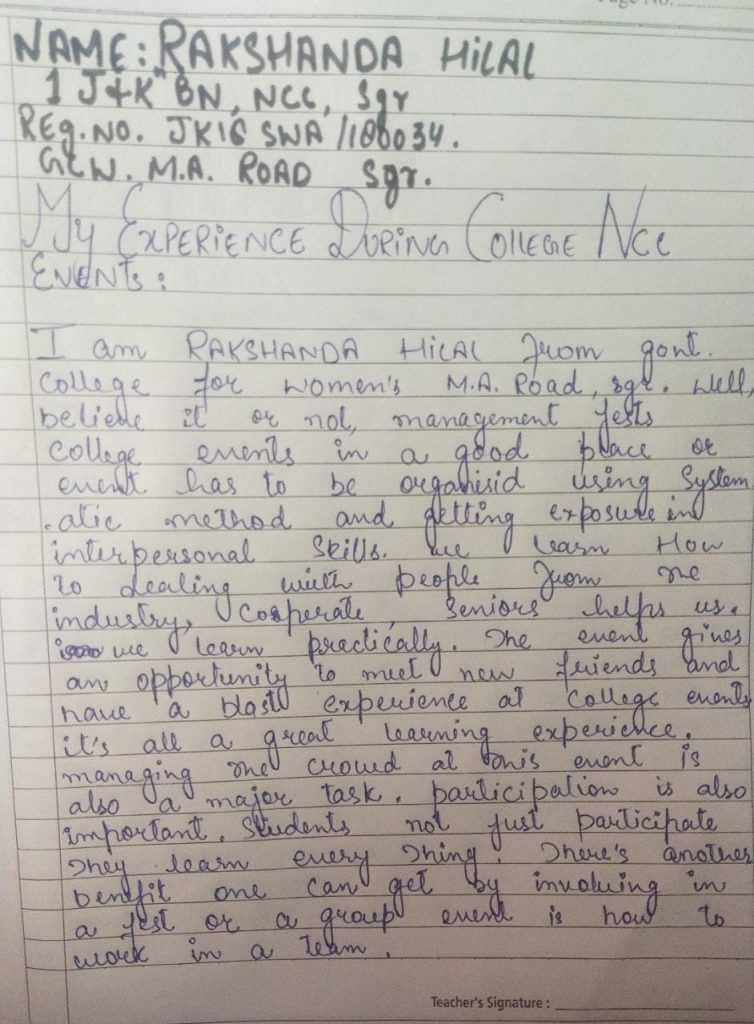 Page No.
NAME: RAKSHANDA HILAL
1 J&K BN, NCC, Sgr
REg. NO. JK16 SWA /180034.
GCW. M.A. ROAD Sgr.
My EXPERIENCE DURING COLLEGE NCC
EVENTs :
I am RAKSHANDA HILAL from govt.
College for women's M.A. Road, sgr. Well,
believe it or not, management fests
College events in a good place or
event has to be organisid using System
.atic method and getting exposure in
interpersonal Skills. we learn How
to dealing with people from the
industry, Cosperate, Seniors helps us.
we learn practically. The event gives
an opportunity to meet new friends and
have a blast experience at College events
it's all a great learning experience.
managing the crowd at this event is
also a major task. participation is also
important. Students not just participate
They learn every Thing. There's another
benefit one can get by involving in
a fest or a group event is how to
work in a team.
Teacher's Signature :